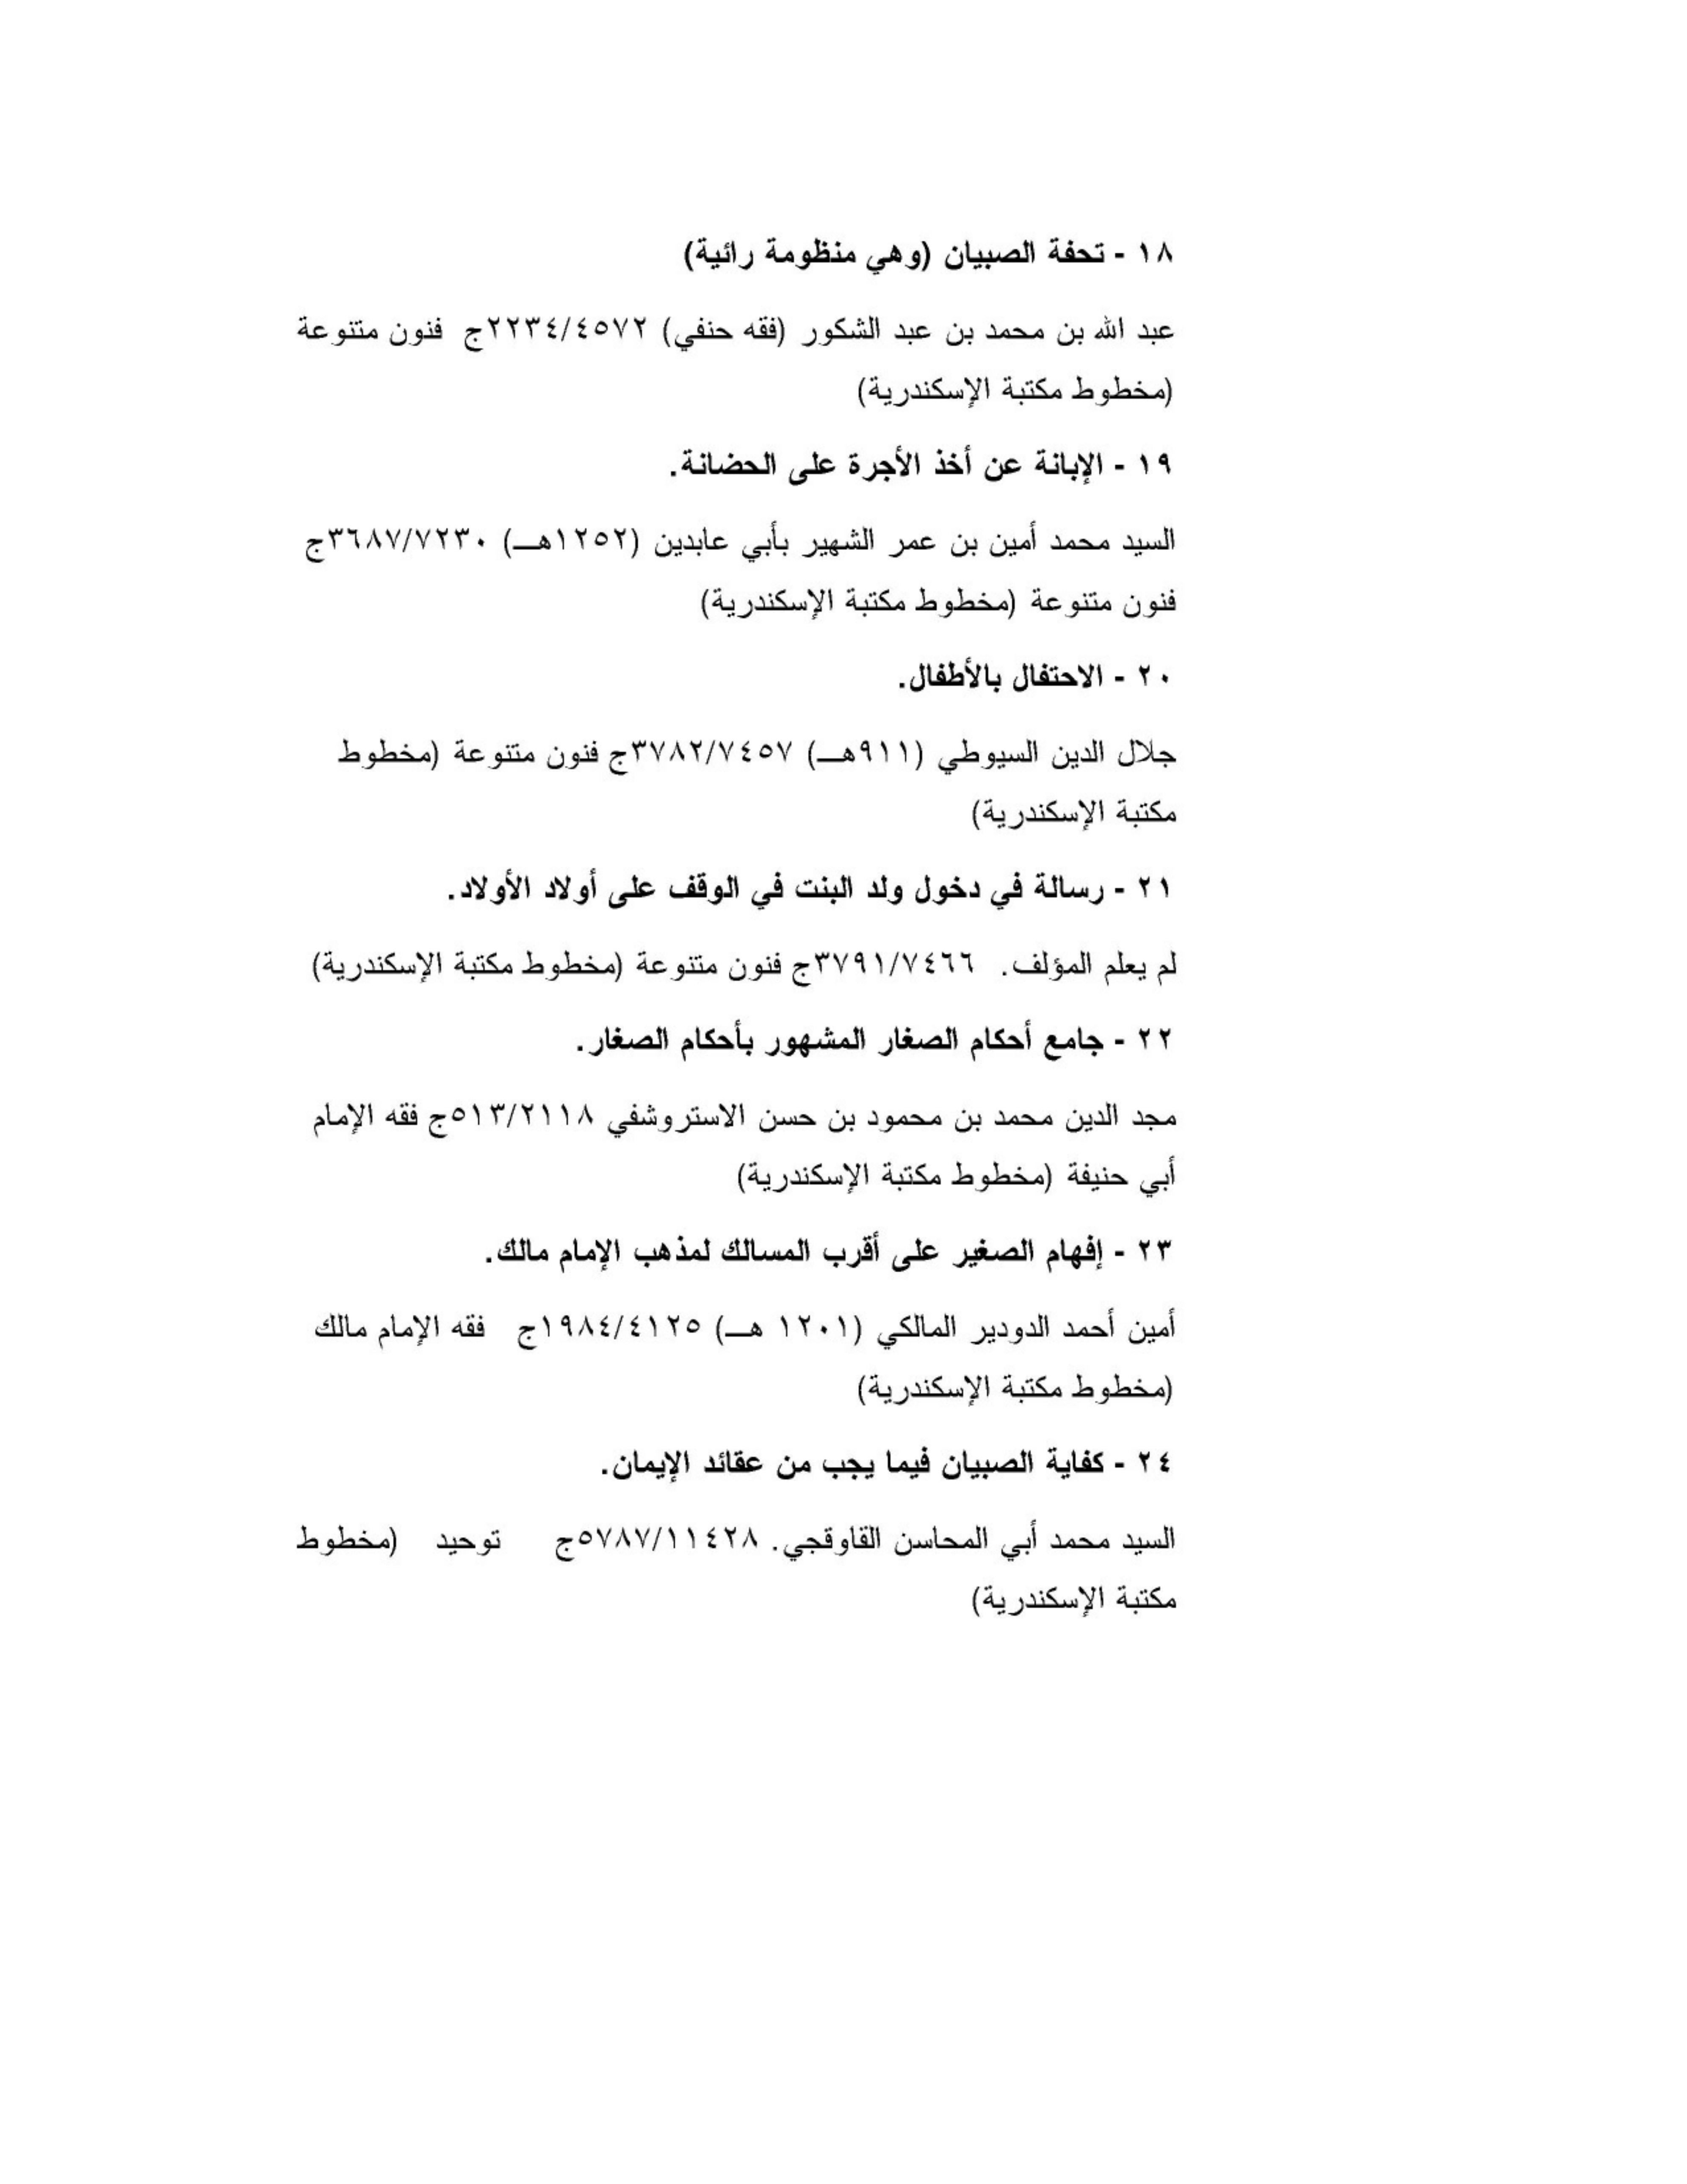 ١٨ - تحفة الصبيان (وهي منظومة رائية)
عبد الله بن محمد بن عبد الشكور (فقه حنفي) ٢٢٣٤/٤٥٧٢ج فنون متنوعة
(مخطوط مكتبة الإسكندرية)
١٩ - الإبانة عن أخذ الأجرة على الحضانة.
السيد محمد أمين بن عمر الشهير بأبي عابدين (١٢٥٢هــ) ٣٦٨٧/٧٢٣٠ج
فنون متنوعة (مخطوط مكتبة الإسكندرية)
٢٠ - الاحتفال بالأطفال.
جلال الدين السيوطي (٩١١هــ) ٣٧٨٢/٧٤٥٧ج فنون متنوعة (مخطوط
مكتبة الإسكندرية)
٢١ - رسالة في دخول ولد البنت في الوقف على أولاد الأولاد.
لم يعلم المؤلف. ٣٧٩١/٧٤٦٦ج فنون متنوعة (مخطوط مكتبة الإسكندرية)
٢٢ - جامع أحكام الصغار المشهور بأحكام الصغار.
مجد الدين محمد بن محمود بن حسن الاستروشفي ٥١٣/٢١١٨ج فقه الإمام
أبي حنيفة (مخطوط مكتبة الإسكندرية)
٢٣ - إفهام الصغير على أقرب المسالك لمذهب الإمام مالك.
أمين أحمد الدودير المالكي (١٢٠١ هــ) ١٩٨٤/٤١٢٥ج فقه الإمام مالك
(مخطوط مكتبة الإسكندرية)
٢٤ - كفاية الصبيان فيما يجب من عقائد الإيمان.
السيد محمد أبي المحاسن القاوقجي. ٥٧٨٧/١١٤٢٨ج توحيد (مخطوط
مكتبة الإسكندرية)